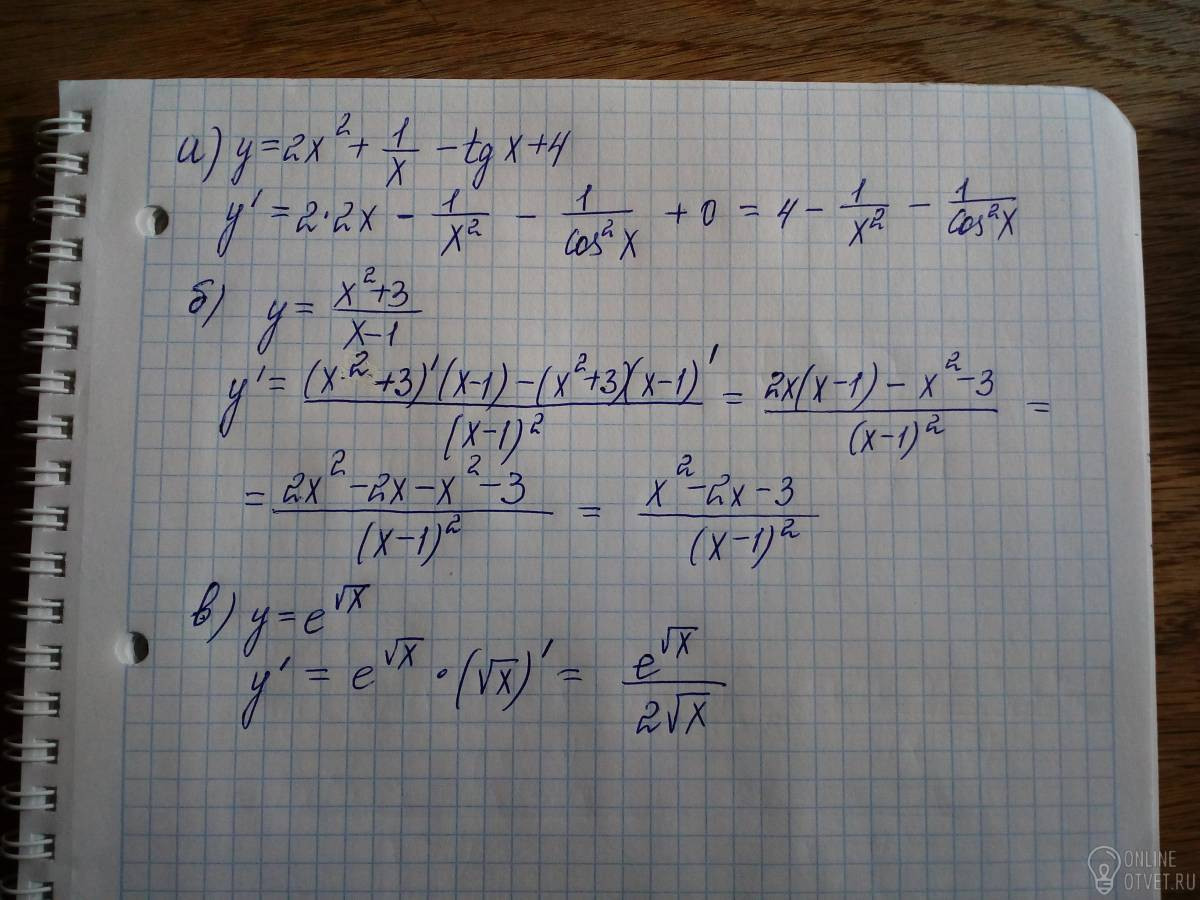 а) y = 2x² + 1/x - tg x + 4
y' = 2·2x - 1/x² - 1/cos²x + 0 = 4 - 1/x² - 1/cos²x
б) y = (x²+3)/(x-1)
y' = ((x²+3)'(x-1) - (x²+3)(x-1)')/(x-1)² = (2x(x-1) - x²-3)/(x-1)² =
= (2x²-2x-x²-3)/(x-1)² = (x²-2x-3)/(x-1)²
в) y = e^√x
y' = e^√x · (√x)' = e^√x/(2√x)
ONLINE
OTVET.RU